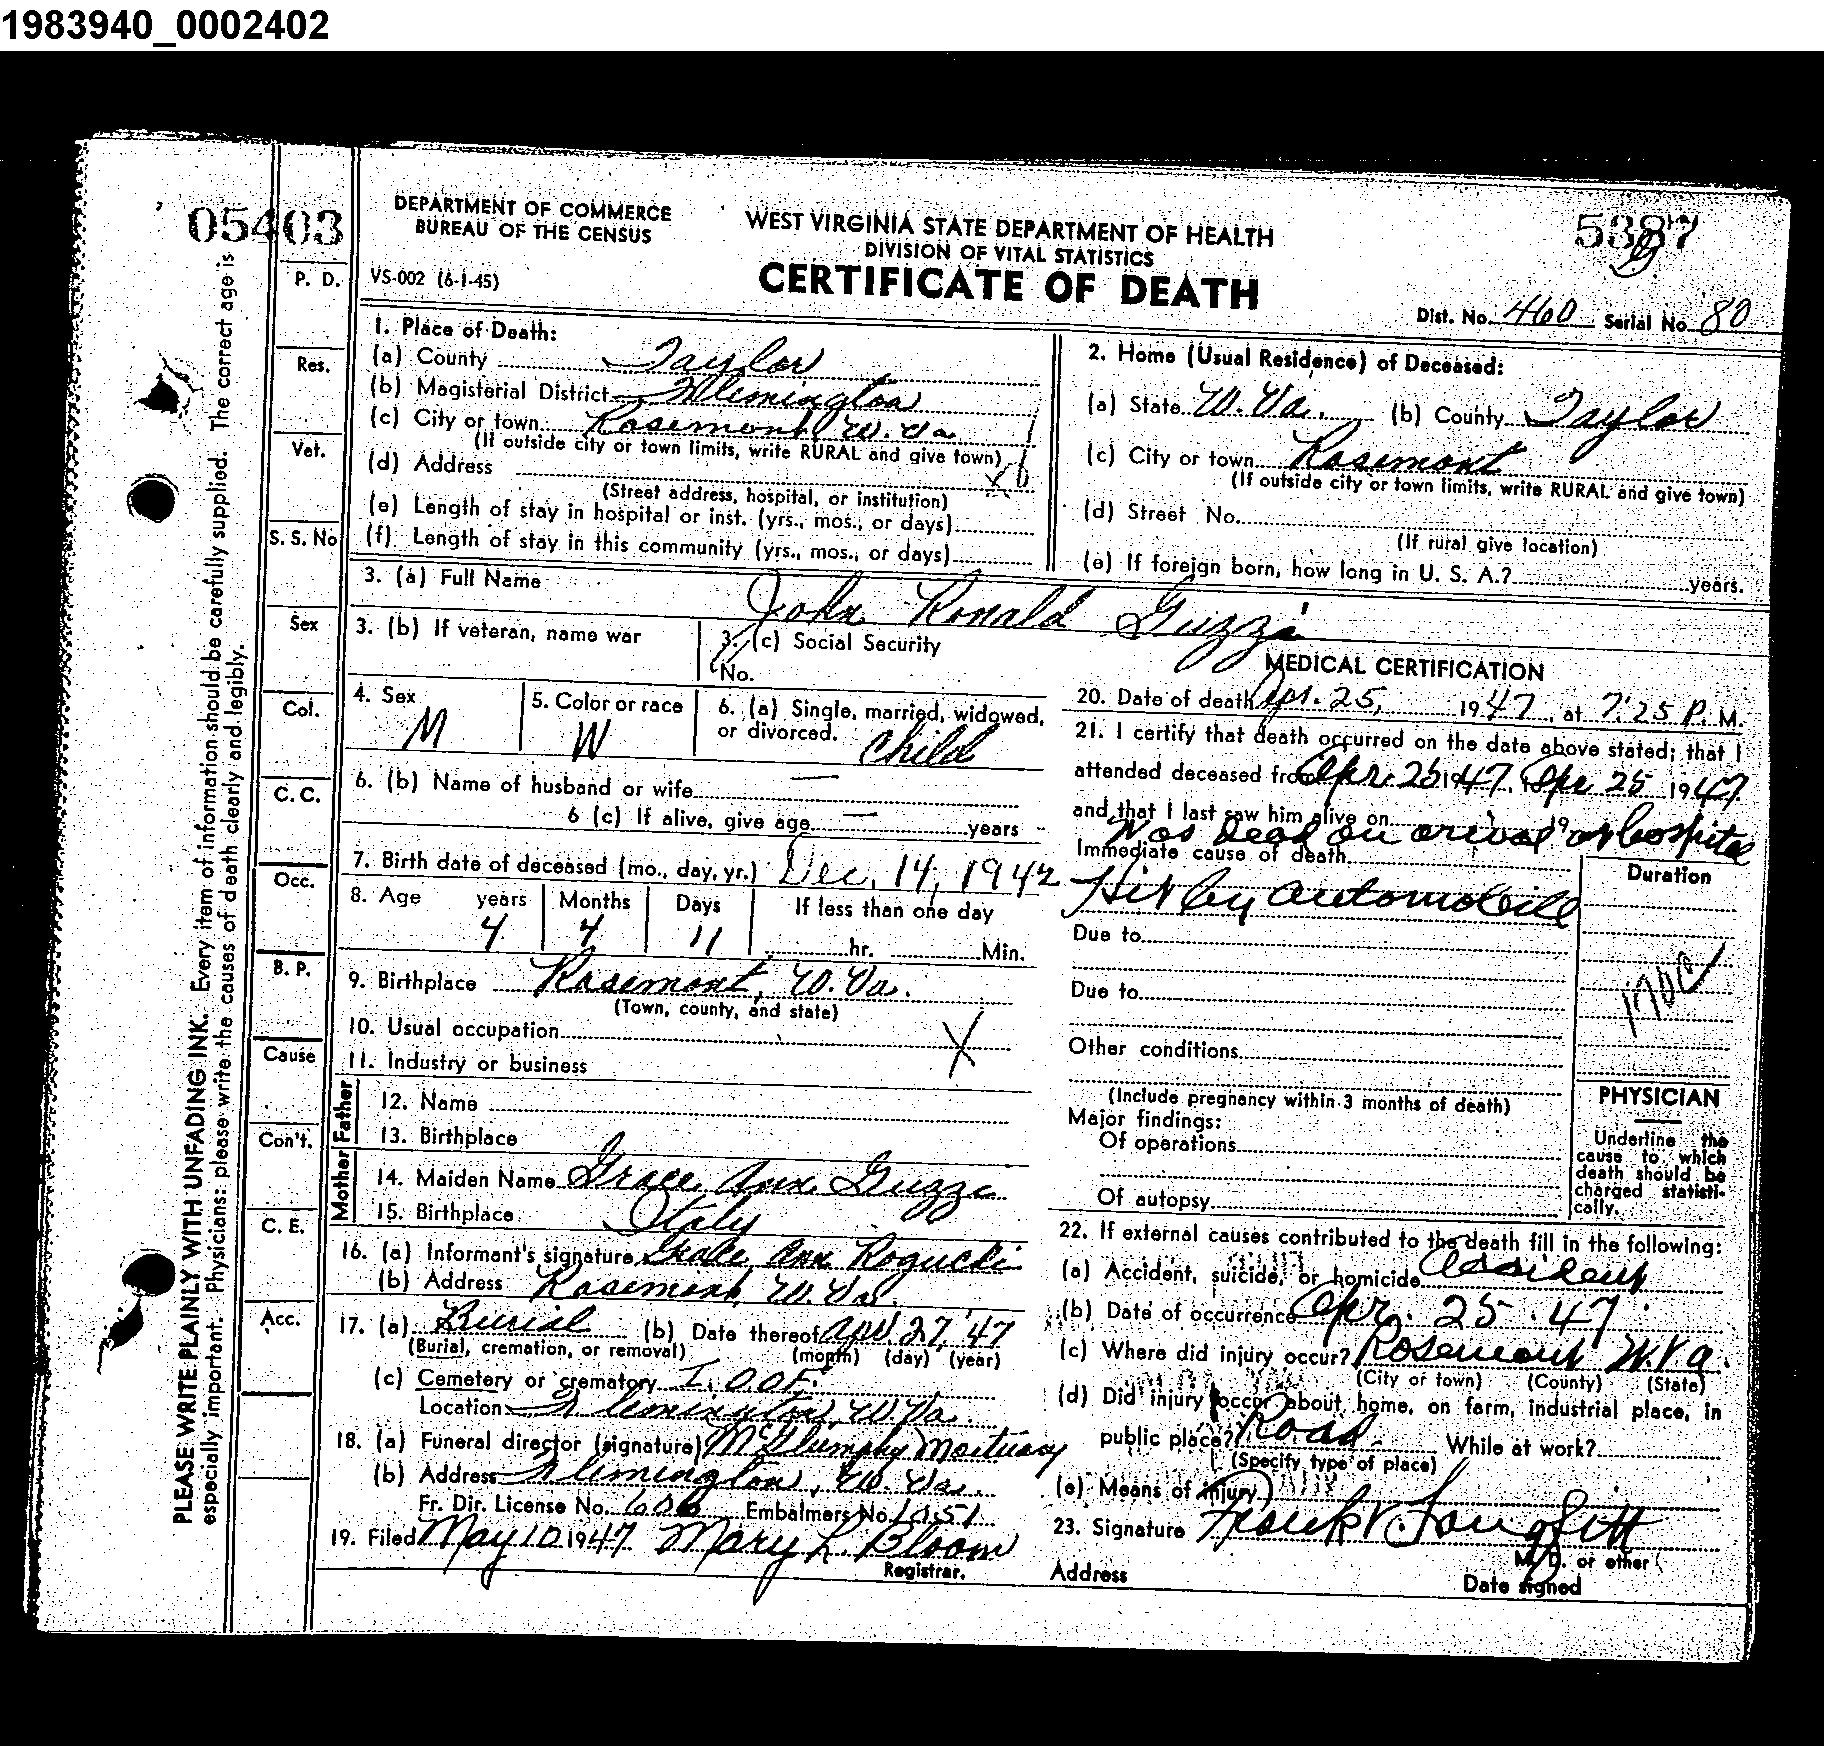 1983940_0002402
05403
DEPARTMENT OF COMMERCE
BUREAU OF THE CENSUS
VS-002 (6-1-45)
WEST VIRGINIA STATE DEPARTMENT OF HEALTH
DIVISION OF VITAL STATISTICS
CERTIFICATE OF DEATH
5387
Dist. No. 460 Serial No. 80
PLEASE WRITE PLAINLY WITH UNFADING INK. Every item of information should be carefully supplied. The correct age is
especially important. Physicians: please write the causes of death clearly and legibly.
P. D.
Res.
Vet.
S. S. No
Sex
Col.
C. C.
Occ.
B. P.
Cause
Con't.
C. E.
Acc.
1. Place of Death:
(a) County Taylor
(b) Magisterial District Flemington
(c) City or town Rosemont, W. Va.
(If outside city or town limits, write RURAL and give town)
(d) Address
(Street address, hospital, or institution)
(e) Length of stay in hospital or inst. (yrs., mos., or days)
(f) Length of stay in this community (yrs., mos., or days)
2. Home (Usual Residence) of Deceased:
(a) State W. Va. (b) County Taylor
(c) City or town Rosemont
(If outside city or town limits, write RURAL and give town)
(d) Street No.
(If rural give location)
(e) If foreign born, how long in U. S. A.? years.
3. (a) Full Name John Ronald Guzzi
3. (b) If veteran, name war
3. (c) Social Security
No.
4. Sex M
5. Color or race W
6. (a) Single, married, widowed,
or divorced. Child
6. (b) Name of husband or wife —
6 (c) If alive, give age — years
7. Birth date of deceased (mo., day, yr.) Dec. 14, 1942
8. Age years Months Days If less than one day
4 4 11 hr. Min.
9. Birthplace Rosemont, W. Va.
(Town, county, and state)
10. Usual occupation
11. Industry or business
X
Father
12. Name
13. Birthplace
Mother
14. Maiden Name Grace Ann Guzze
15. Birthplace Italy
16. (a) Informant's signature Grace Ann Rogucki
(b) Address Rosemont, W. Va.
17. (a) Burial (b) Date thereof Apr 27, '47
(Burial, cremation, or removal) (month) (day) (year)
(c) Cemetery or crematory I.O.O.F.
Location Flemington, W. Va.
18. (a) Funeral director (signature) McGlumphy Mortuary
(b) Address Flemington, W. Va.
Fr. Dir. License No. 606 Embalmers No. 1951
19. Filed May 10 1947 Mary L. Bloom
Registrar.
MEDICAL CERTIFICATION
20. Date of death Apr. 25, 1947, at 7:25 P. M.
21. I certify that death occurred on the date above stated; that I
attended deceased from Apr. 25 1947, Apr 25 1947
and that I last saw him alive on 19
Was Dead on arival at hospital
Immediate cause of death
Hit by automobile
Duration
Due to
Due to
1700
Other conditions
(Include pregnancy within 3 months of death)
Major findings:
Of operations
Of autopsy
PHYSICIAN
Underline the
cause to which
death should be
charged statisti-
cally.
22. If external causes contributed to the death fill in the following:
(a) Accident, suicide, or homicide Accident
(b) Date of occurrence Apr. 25 . 47
(c) Where did injury occur? Rosemont W. Va.
(City or town) (County) (State)
(d) Did injury occur about home, on farm, industrial place, in
public place? Road While at work?
(Specify type of place)
(e) Means of injury
23. Signature Frank V. Langfitt
M. D. or other
Address
Date signed